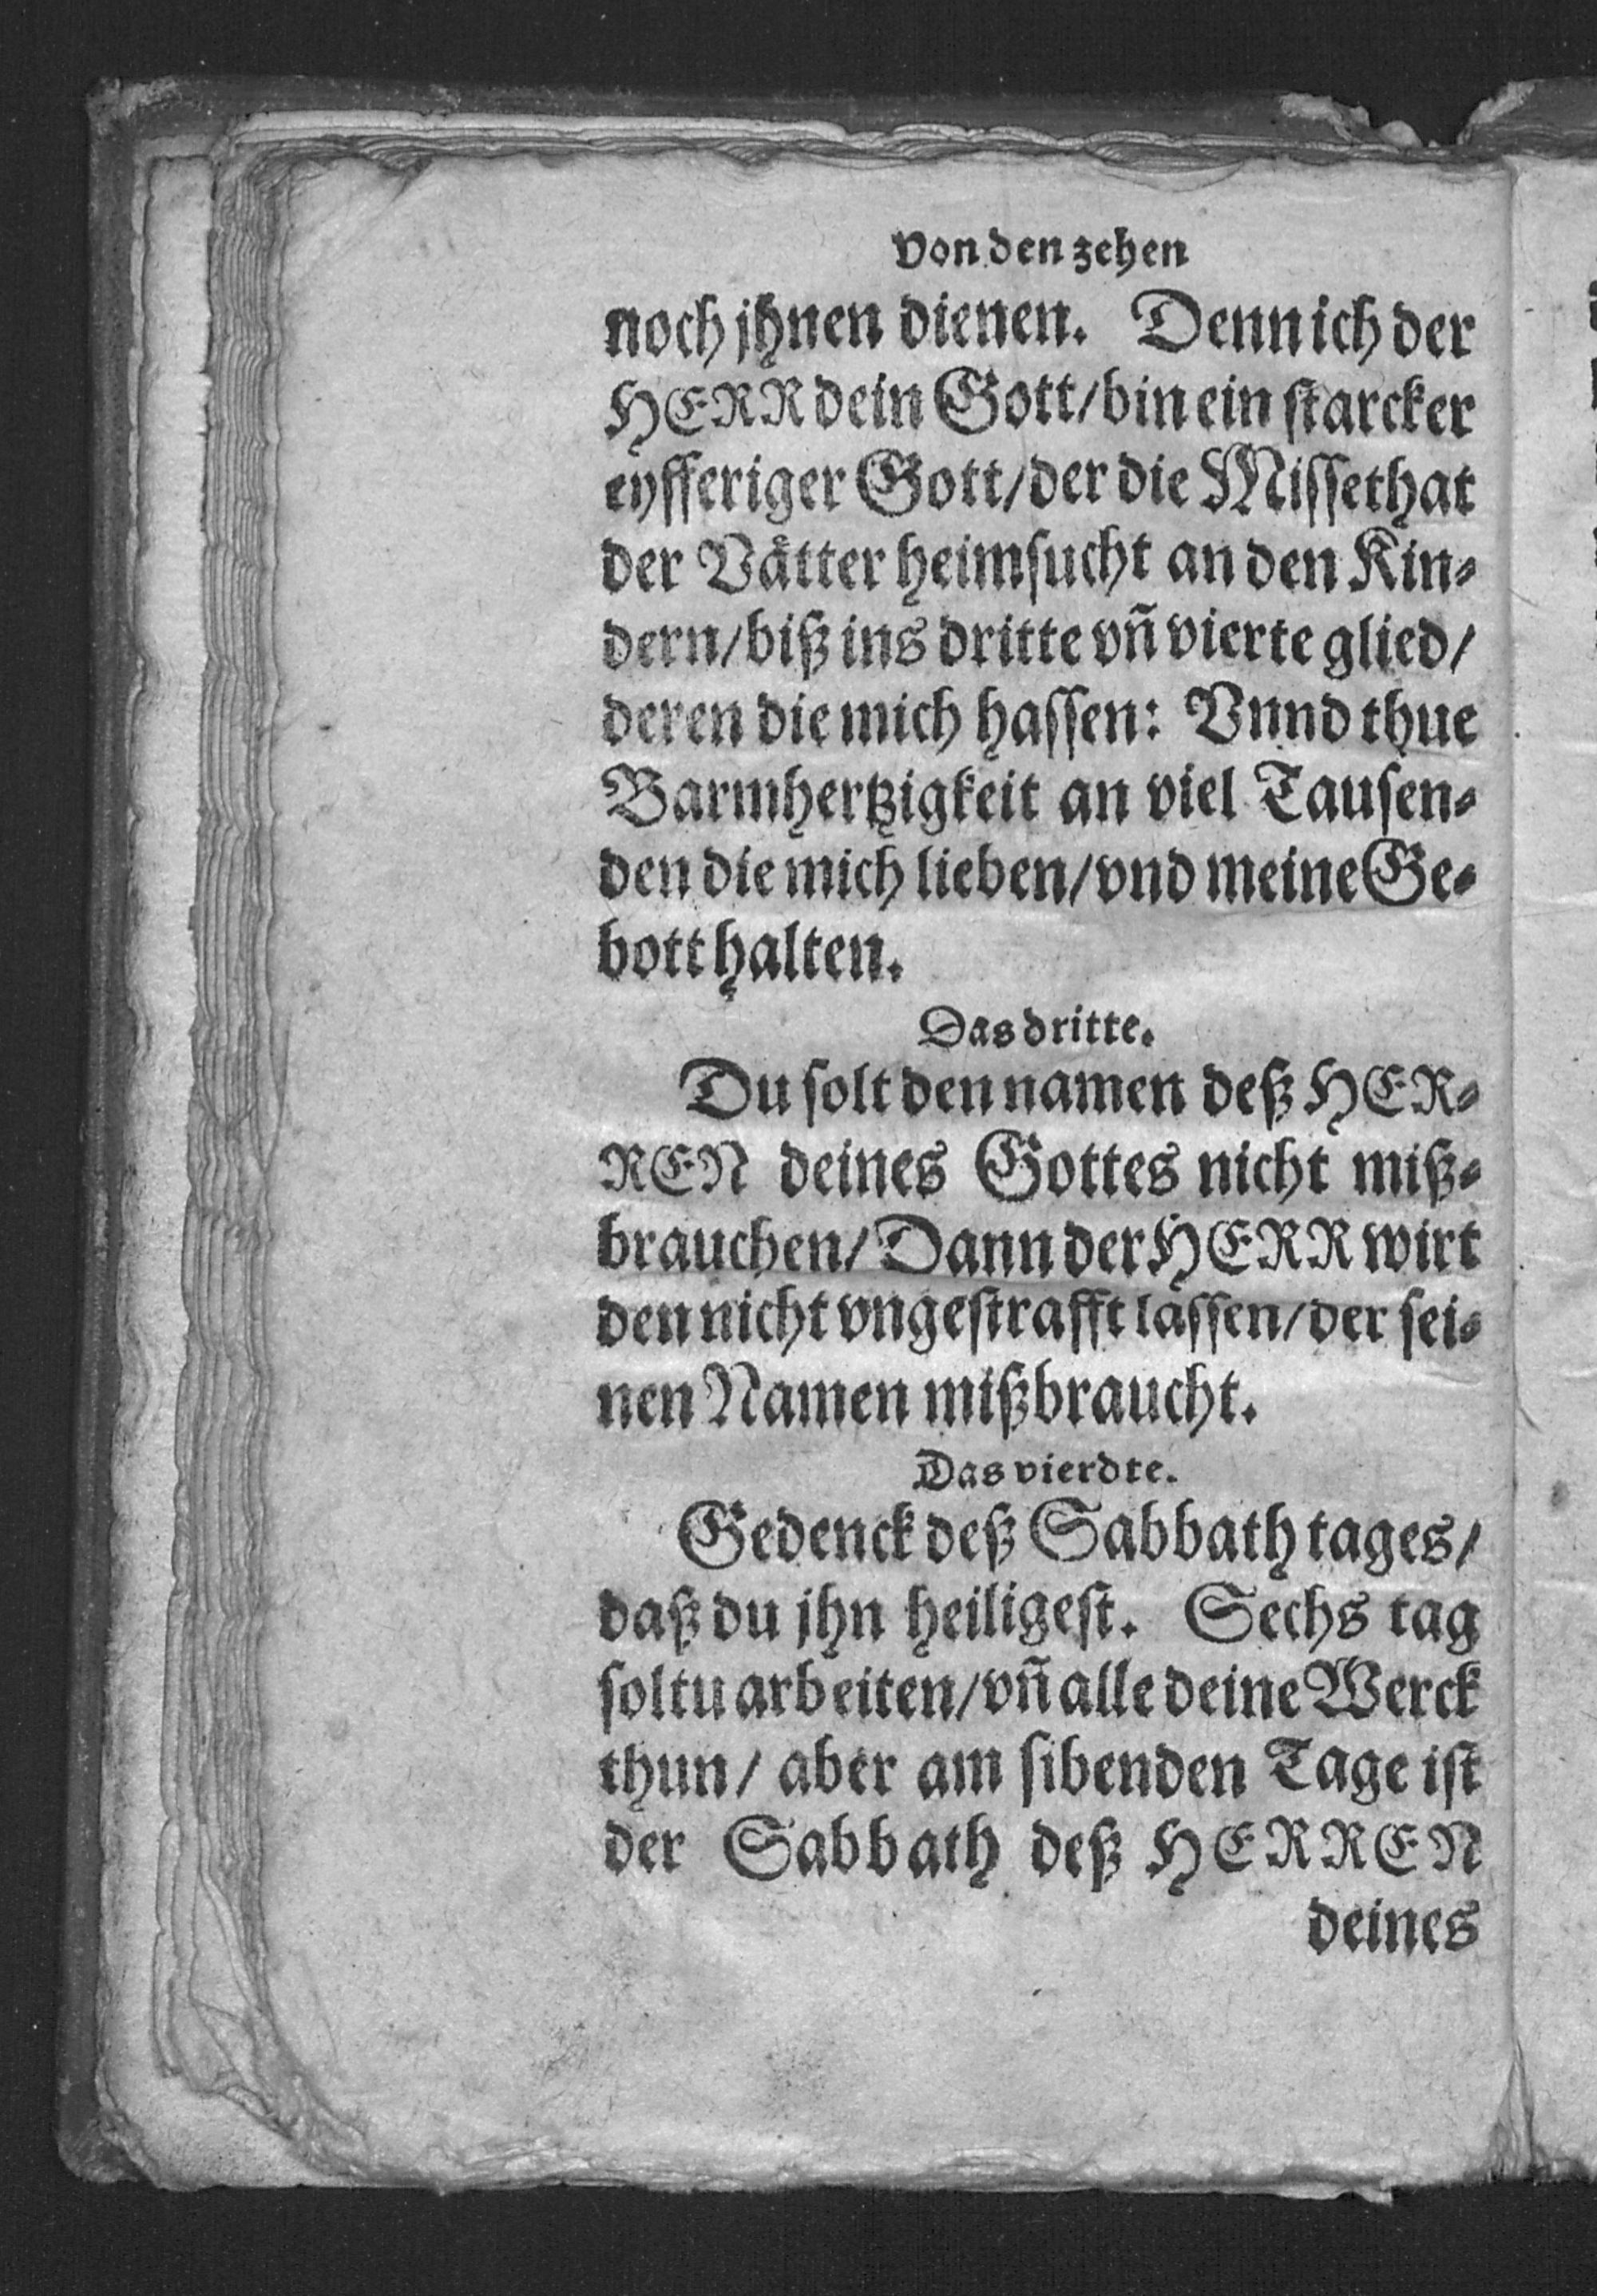 Von den zehen
noch jhnen dienen. Denn ich der
HERR dein Gott/ bin ein starcker
eyfferiger Gott/ der die Missethat
der Vätter heimsucht an den Kin-
dern/ biß ins dritte vñ vierte glied/
deren die mich hassen: Vnnd thue
Barmhertzigkeit an viel Tausen-
den die mich lieben/ vnd meine Ge-
bott halten.
Das dritte.
Du solt den namen deß HER-
REN deines Gottes nicht miß-
brauchen/ Dann der HERR wirt
den nicht vngestrafft lassen/ der sei-
nen Namen mißbraucht.
Das vierdte.
Gedenck deß Sabbath tages/
daß du jhn heiligest. Sechs tag
soltu arbeiten/ vñ alle deine Werck
thun/ aber am sibenden Tage ist
der Sabbath deß HERREN
deines